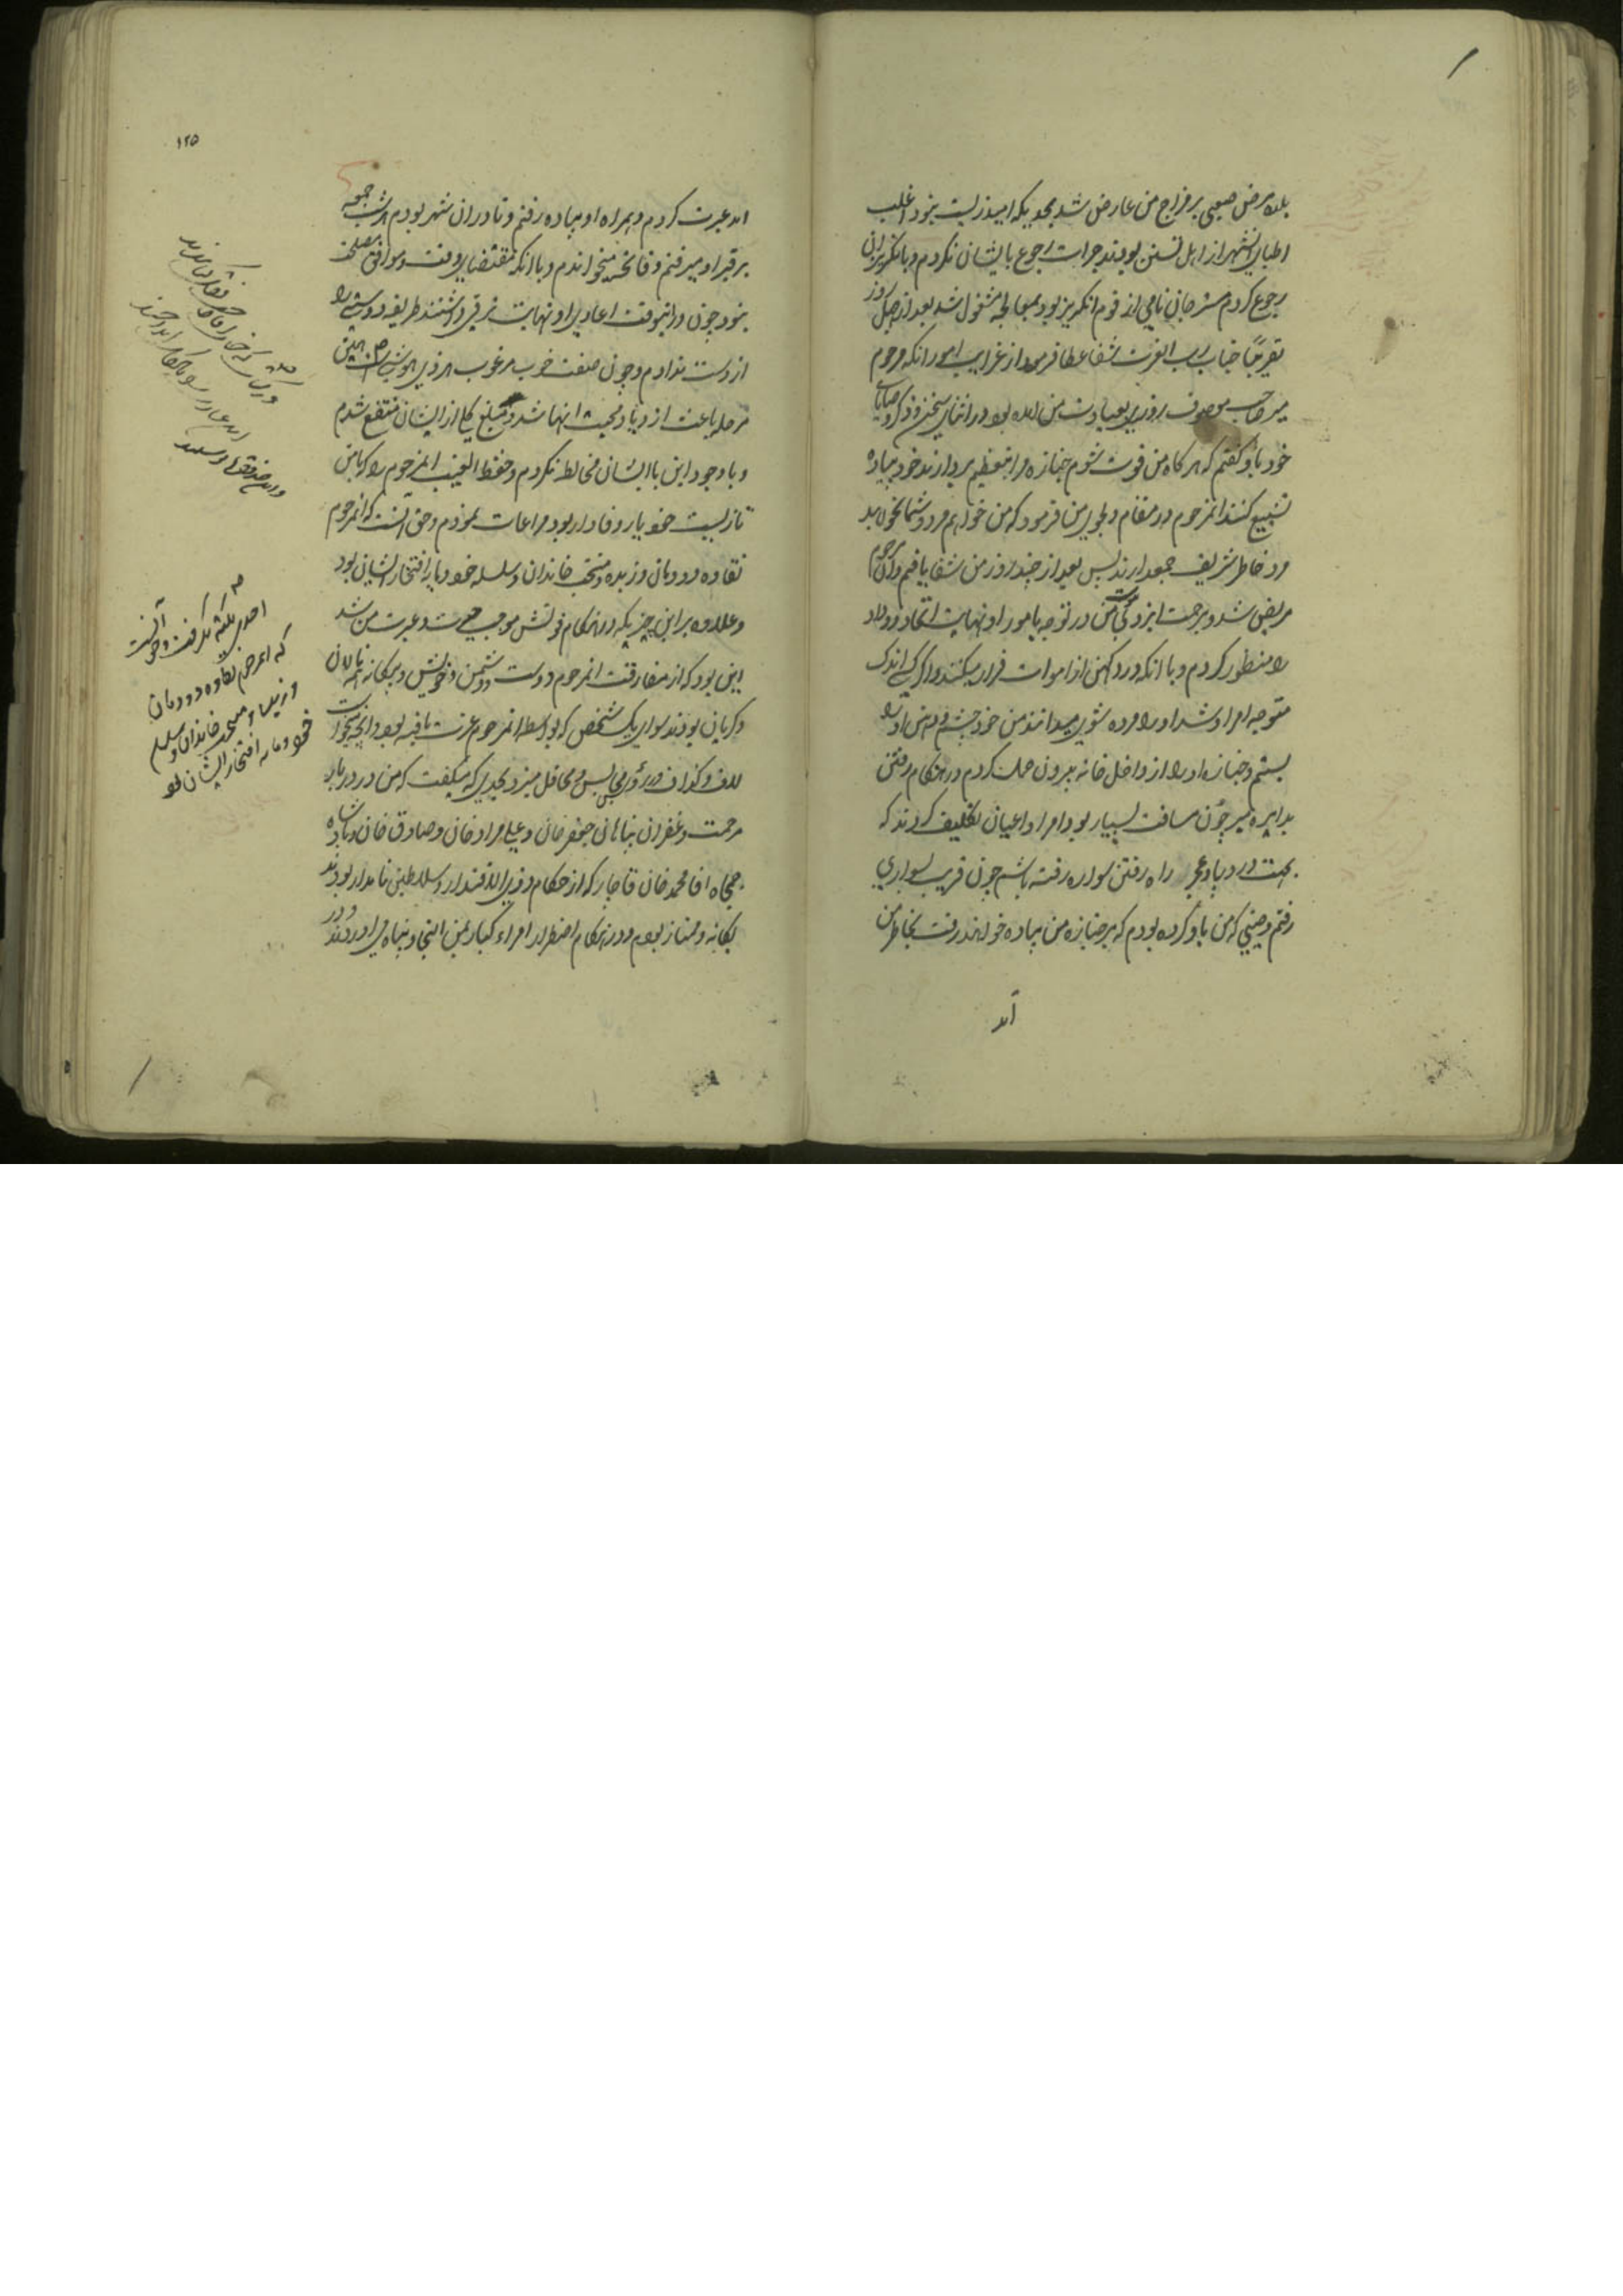 بلده مرض صعبی بر مزاج من عارض شد بحدیکه امید زیست نبود اغلب
اطبای آنشهر از اهل تسنن بودند جرات رجوع بایشان نکردم و بانگریزان
رجوع کردم مسترجانی نامی از قوم انگریز بود بمعالجه مشغول شد بعد از چهل روز
تقریبًا جناب رب العزت شفا عطا فرمود از غرایب امور انکه مرحوم
میر صاحب موصوف روزی بعیادت من امده بود در اثنای سخن و ذکر وصایای
خود باو گفتم که هر گاه من فوت شوم جنازه مرا بتعظیم بردارند خود پیاده
تشییع کنند انمرحوم در مقام دلجویی من فرمود که من خواهم مرد و شما نخواهید
مرد خاطر شریف جمعدارند پس بعد از چند روز من شفا یافتم و ان مرحوم
مریض شد و برحمت ایزدی پیوست من در توجه بامور او نهایت اتحاد و وداد
را منظور کردم و با انکه در دکهن از اموات فرار میکنند و اگر کسی اندک
متوجه امر او شد او را مرده شوی میدانند من خود چشم و دهن او را
بستم و جنازه او را از داخل خانه بیرون حمل کردم در هنگام رفتن
بدایره میر چون مسافت بسیار بود امرا و اعیان تکلیف کردند که
بجهت درد پا و عجز راه رفتن سواره رفته باشم چون قریب بسواری
رفتم وصیتی که من باو کرده بودم که بر جنازه من پیاده خواهند رفت بخاطر من
آمد
۱۲۵
امد عبرت کردم و همراه او پیاده رفتم و تا در ان شهر بودم هر شب جمعه
بر قبر او میرفتم و فاتحه میخواندم و با انکه مقتضای وقت و موافق مصلحت
نبود چون در انوقت اعادی او نهایت ترقی داشتند طریقه دوستی را
از دست ندادم و چون صفت خوب مرغوب هر ذی هوش است همین
مرحله باعث ازدیاد محبت انها شد و مبلغ کلی از ایشان منتفع شدم
و با وجود این با ایشان مخالطه نکردم و حفظ الغیب انمرحوم را که با من
تا زیست خود یار وفادار بود مراعات نمودم و حق آنست که انمرحوم
نقاوه دودمان و زبده و منتخب خاندان و سلسله خود و مایه افتخار ایشان بود
و علاوه بر این چیزیکه در هنگام فوتش موجب حیرت و عبرت من شد
این بود که از مفارقت انمرحوم دوست و دشمن و خویش و بیگانه همه نالان
و گریان بودند سوای یک شخص که بواسطه انمرحوم عزت یافته بود و انچه میخواست
لاف و گذاف در رؤس مجالس و محافل میزد بحدیکه میگفت که من در دربار
مرحمت و غفران پناهان جعفر خان و علی مراد خان و صادق خان و پادشاه
جمجاه اقا محمد خان قاجار که از حکام ذوی الاقتدار و سلاطین نامدار بودند
یگانه و ممتاز بودم و در هنگام اضطرار امراء کبار بمن التجا و پناه می اوردند و در
احدی بکنه نگرفت و حق آنست
که انمرحوم نقاوه دودمان
و زبده و منتخب خاندان و سلسله
خود و مایه افتخار ایشان بود